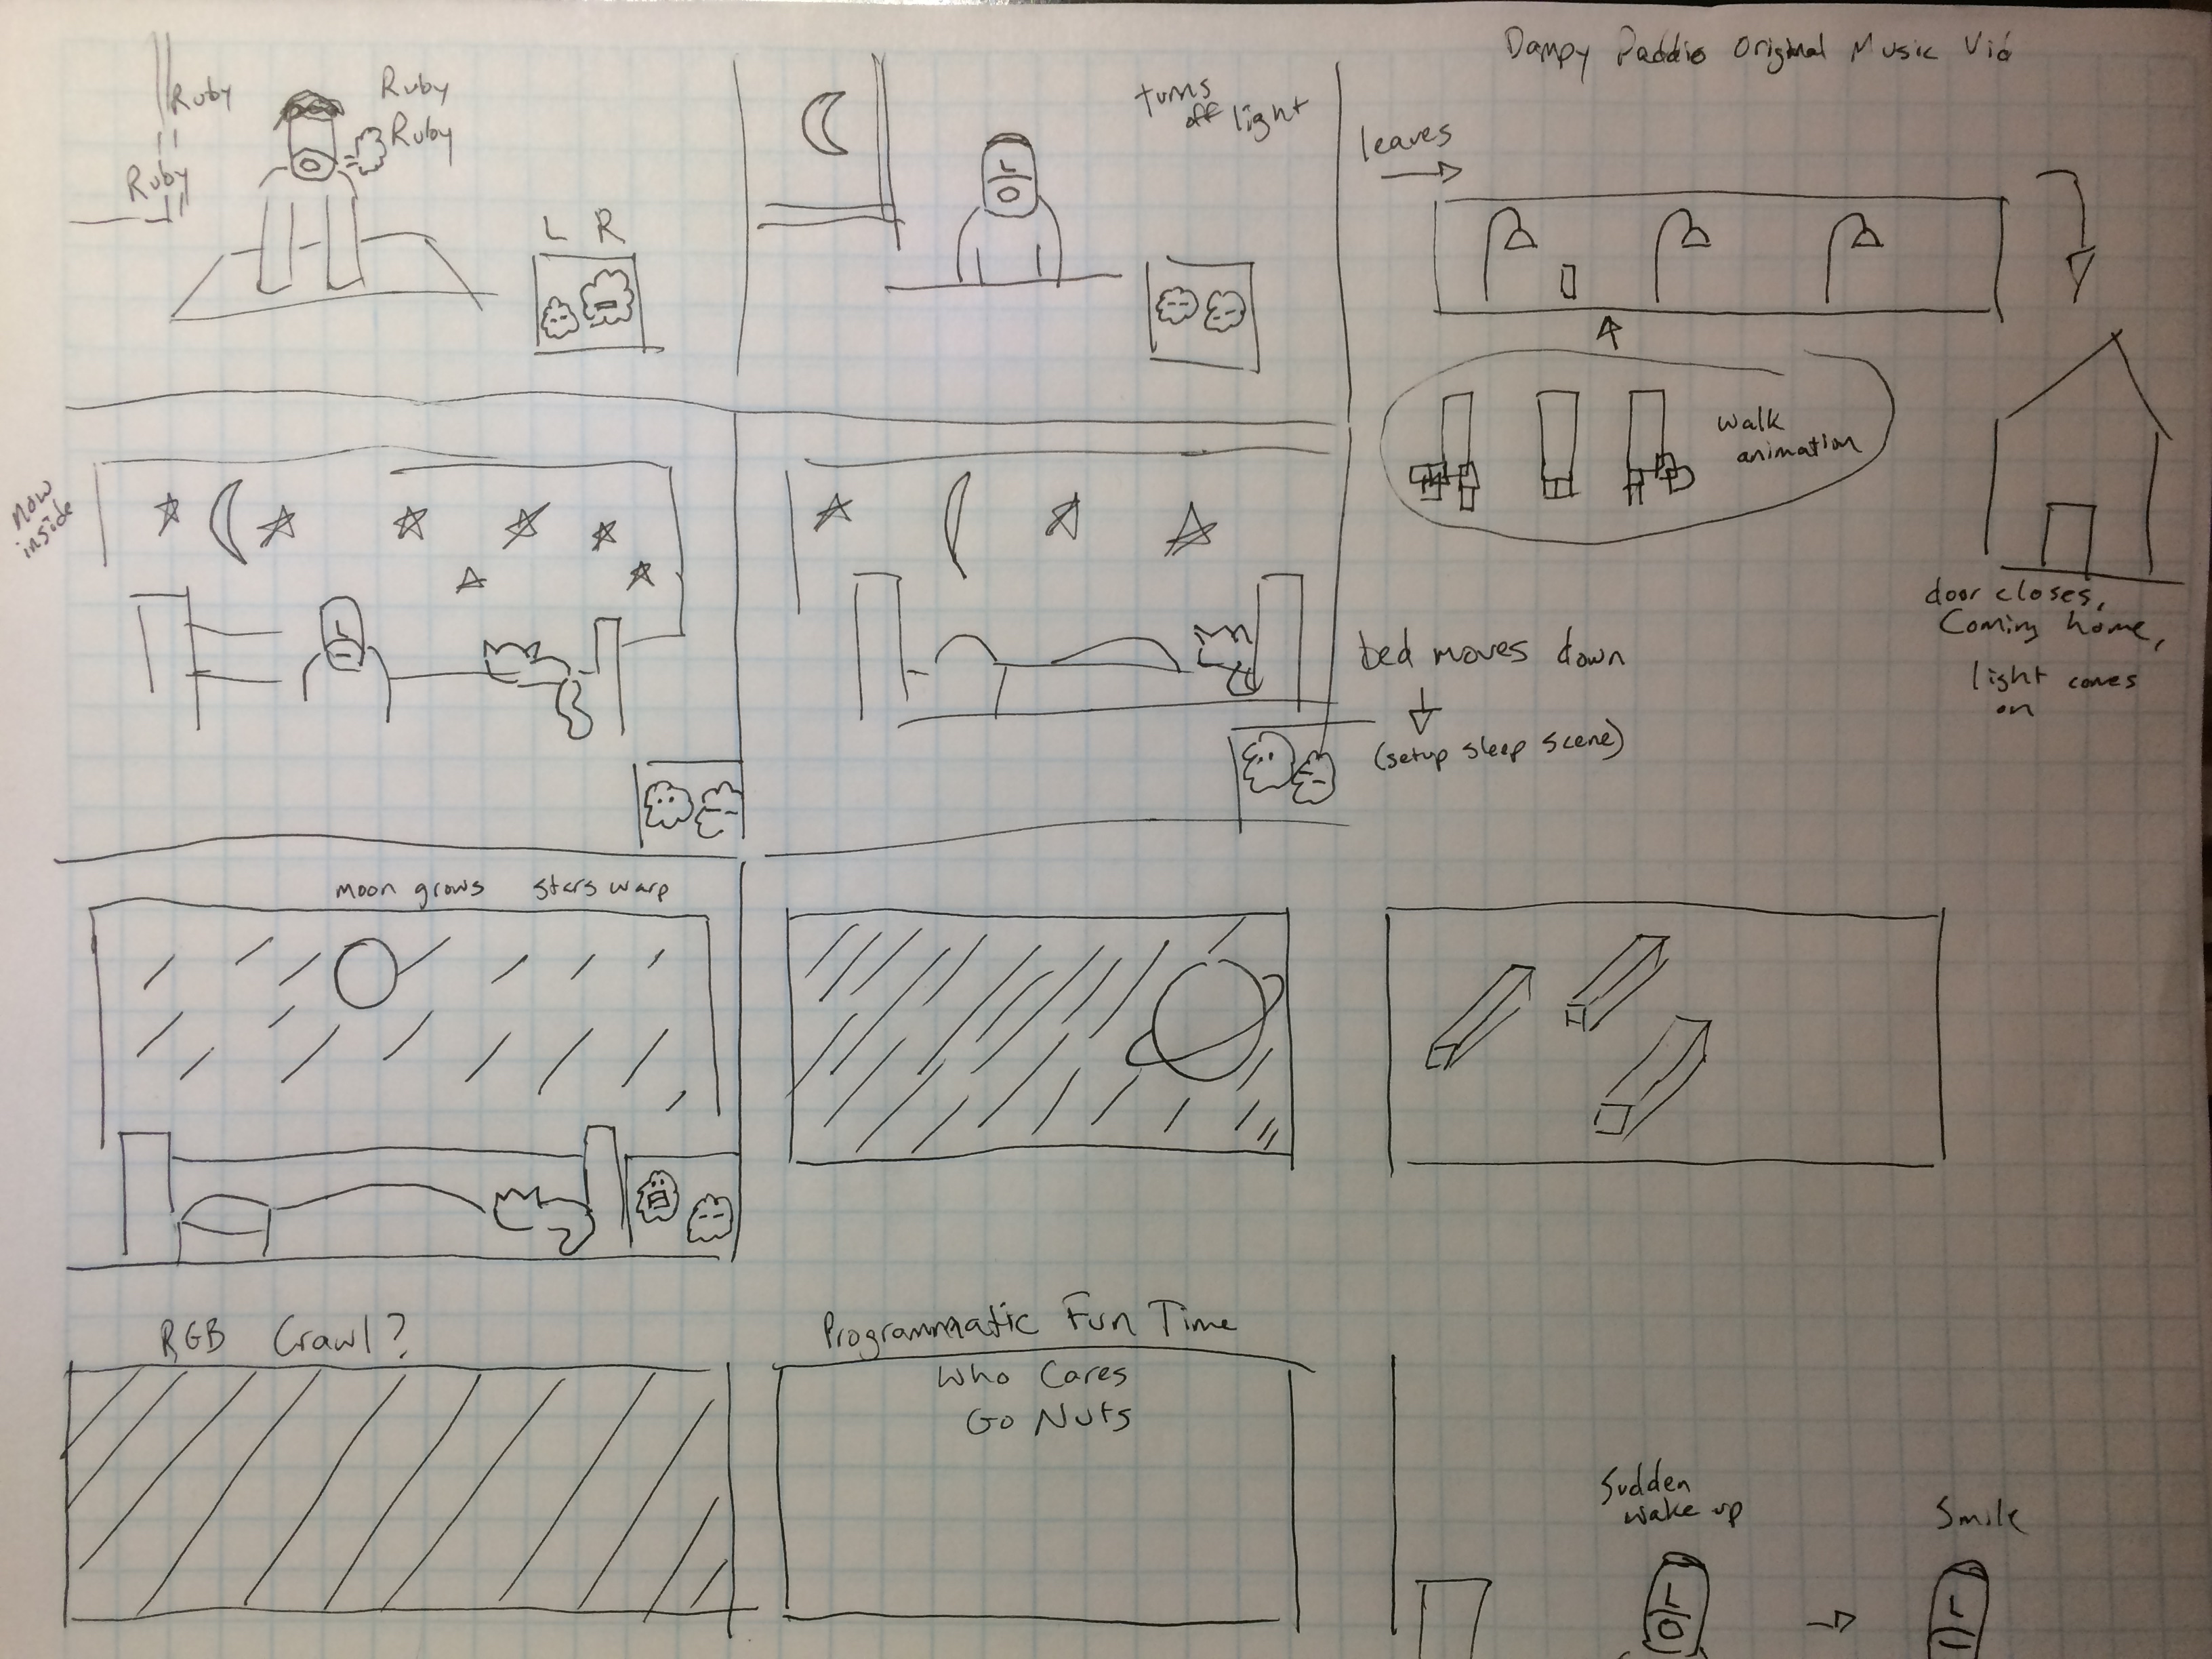 Dampy Paddio Original Music Vid
Ruby
Ruby
Ruby
Ruby
L R
turns
off light
leaves
walk
animation
door closes,
Coming home,
light comes
on
now
inside
bed moves down
(setup sleep scene)
moon grows stars warp
RGB Crawl?
Programmatic Fun Time
Who Cares
Go Nuts
Sudden
wake up
Smile